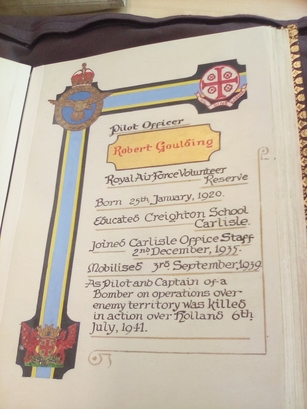 Pilot Officer
Robert Goulding
Royal Air Force Volunteer
Reserve
Born 25th January, 1920.
Educated Creighton School
Carlisle.
Joined Carlisle Office Staff
2nd December, 1935.
Mobilised 3rd September, 1939
As Pilot and Captain of a
Bomber on operations over
enemy territory was killed
in action over Holland 6th
July, 1941.